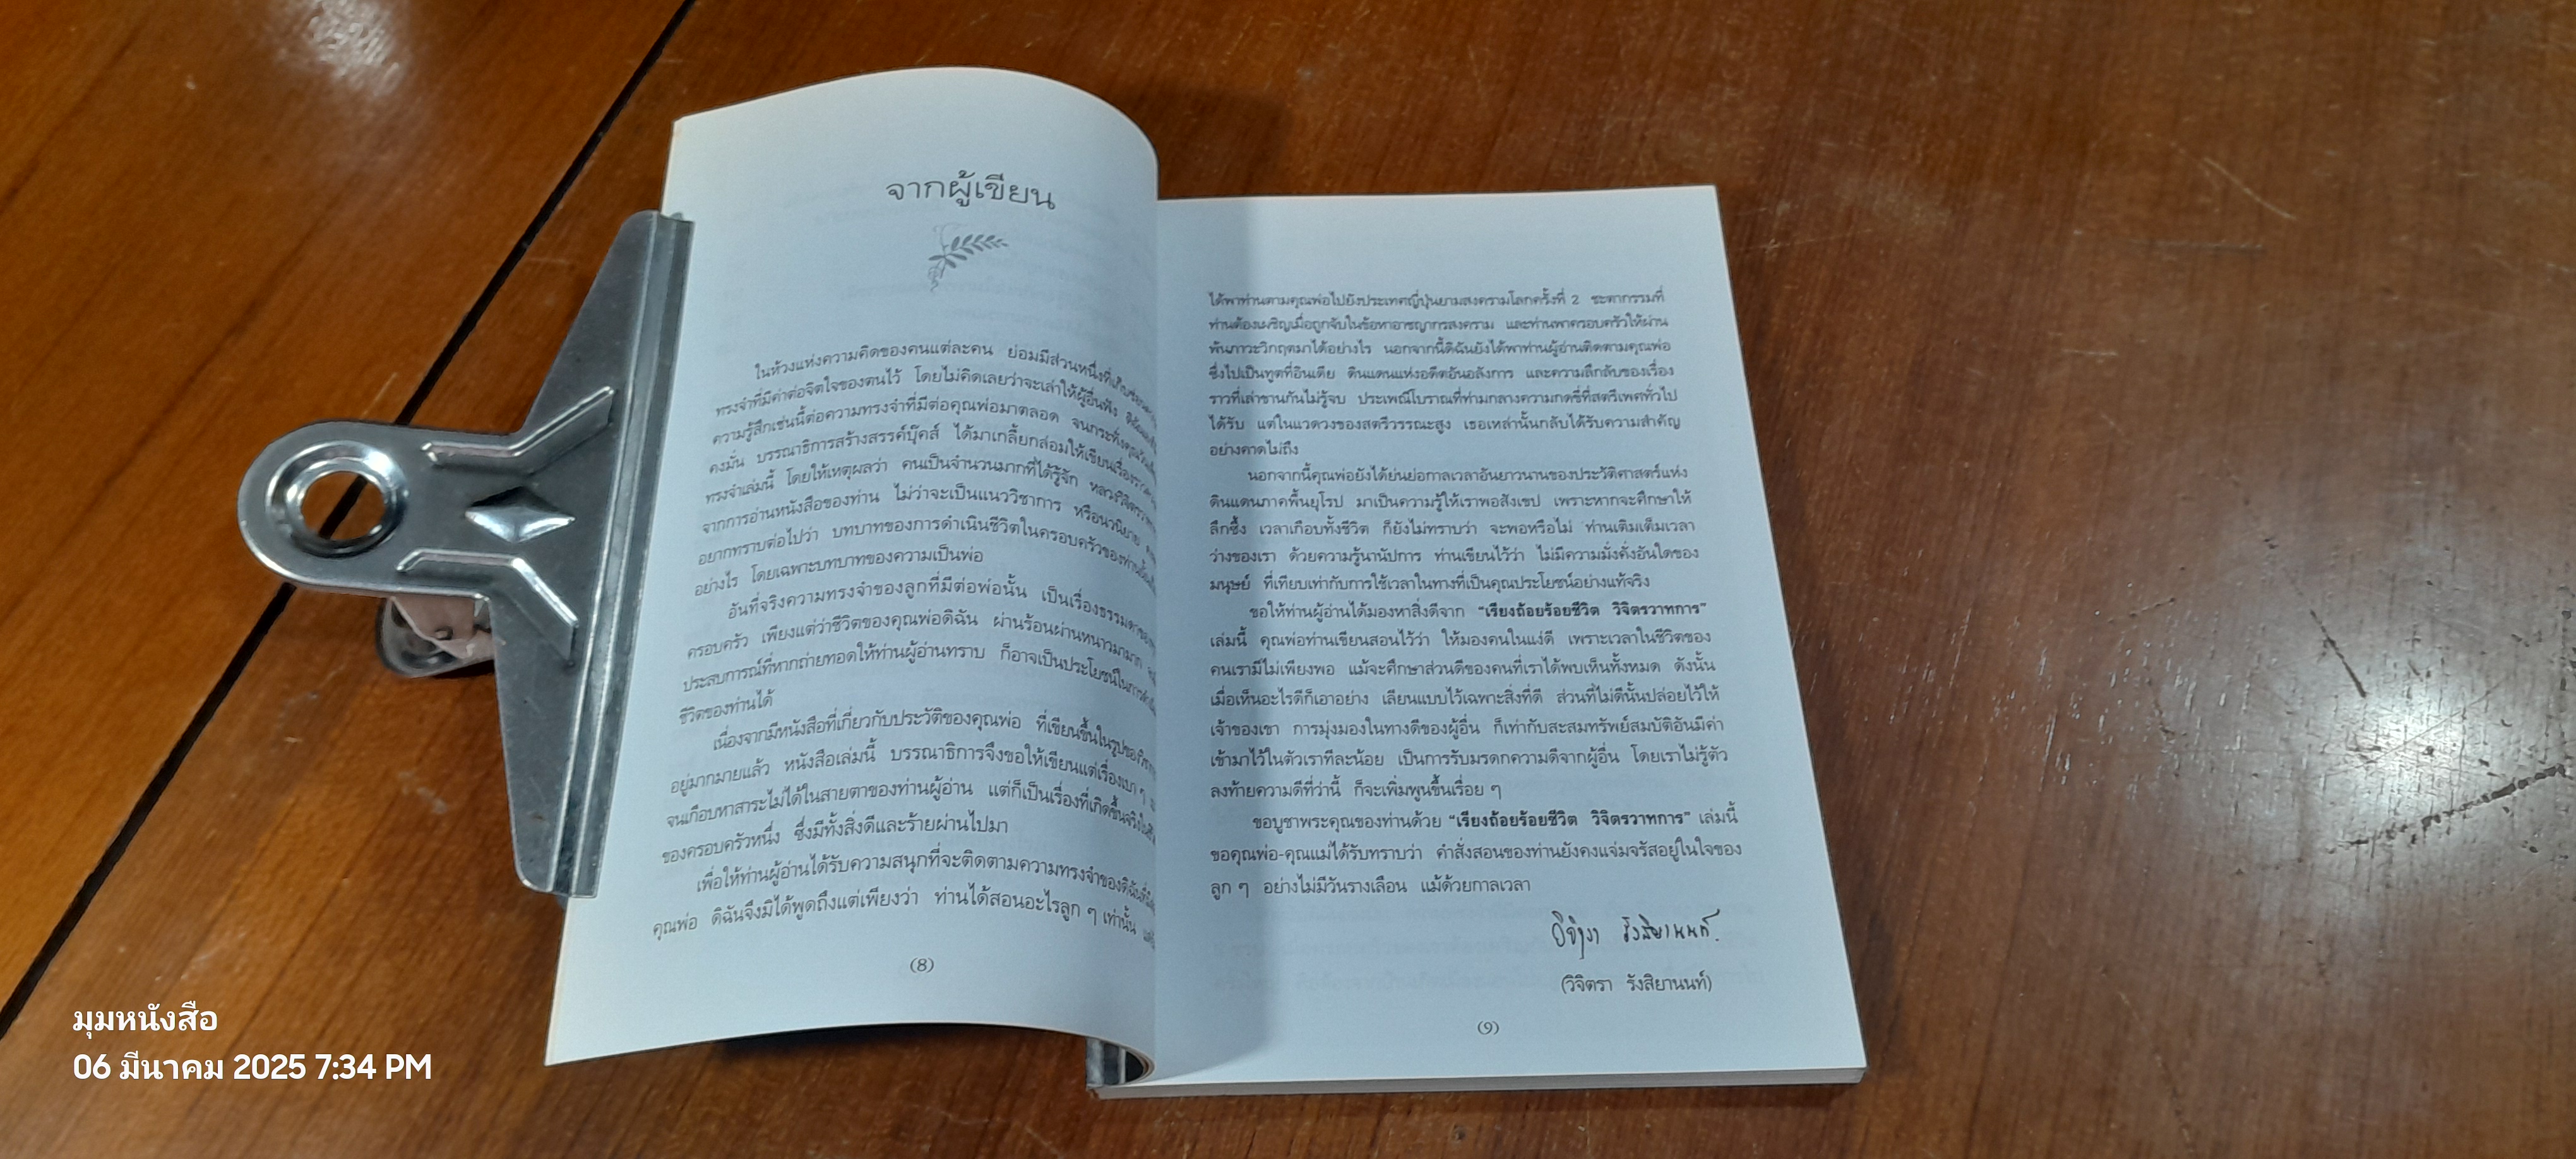 จากผู้เขียน
ในห้วงแห่งความคิดของคนแต่ละคน ย่อมมีส่วนหนึ่งที่เก็บซ่อน
ทรงจำที่มีค่าต่อจิตใจของตนไว้ โดยไม่คิดเลยว่าจะเล่าให้ผู้อื่นฟัง
ความรู้สึกเช่นนี้ต่อความทรงจำที่มีต่อคุณพ่อมาตลอด จนกระทั่งคุณ
คงมั่น บรรณาธิการสร้างสรรค์บุ๊คส์ ได้มาเกลี้ยกล่อมให้เขียนเรื่อง
ทรงจำเล่มนี้ โดยให้เหตุผลว่า คนเป็นจำนวนมากที่ได้รู้จัก หลวงวิจิตรวาทการ
จากการอ่านหนังสือของท่าน ไม่ว่าจะเป็นแนววิชาการ หรือนวนิยาย
อยากทราบต่อไปว่า บทบาทของการดำเนินชีวิตในครอบครัวของท่านนั้น
อย่างไร โดยเฉพาะบทบาทของความเป็นพ่อ
อันที่จริงความทรงจำของลูกที่มีต่อพ่อนั้น เป็นเรื่องธรรมดาของ
ครอบครัว เพียงแต่ว่าชีวิตของคุณพ่อดิฉัน ผ่านร้อนผ่านหนาวมามาก
ประสบการณ์ที่หากถ่ายทอดให้ท่านผู้อ่านทราบ ก็อาจเป็นประโยชน์ในการ
ชีวิตของท่านได้
เนื่องจากมีหนังสือที่เกี่ยวกับประวัติของคุณพ่อ ที่เขียนขึ้นในรูปของ
อยู่มากมายแล้ว หนังสือเล่มนี้ บรรณาธิการจึงขอให้เขียนแต่เรื่องเบา ๆ
จนเกือบหาสาระไม่ได้ในสายตาของท่านผู้อ่าน แต่ก็เป็นเรื่องที่เกิดขึ้นจริง
ของครอบครัวหนึ่ง ซึ่งมีทั้งสิ่งดีและร้ายผ่านไปมา
เพื่อให้ท่านผู้อ่านได้รับความสนุกที่จะติดตามความทรงจำของดิฉัน
คุณพ่อ ดิฉันจึงมิได้พูดถึงแต่เพียงว่า ท่านได้สอนอะไรลูก ๆ เท่านั้น
(8)
ได้พาท่านตามคุณพ่อไปยังประเทศญี่ปุ่นยามสงครามโลกครั้งที่ 2 ชะตากรรมที่
ท่านต้องเผชิญเมื่อถูกจับในข้อหาอาชญากรสงคราม และท่านพาครอบครัวให้ผ่าน
พ้นภาวะวิกฤตมาได้อย่างไร นอกจากนี้ดิฉันยังได้พาท่านผู้อ่านติดตามคุณพ่อ
ซึ่งไปเป็นทูตที่อินเดีย ดินแดนแห่งอดีตอันอลังการ และความลึกลับของเรื่อง
ราวที่เล่าขานกันไม่รู้จบ ประเพณีโบราณที่ท่ามกลางความกดขี่ที่สตรีเพศทั่วไป
ได้รับ แต่ในแวดวงของสตรีวรรณะสูง เธอเหล่านั้นกลับได้รับความสำคัญ
อย่างคาดไม่ถึง
นอกจากนี้คุณพ่อยังได้ย่นย่อกาลเวลาอันยาวนานของประวัติศาสตร์แห่ง
ดินแดนภาคพื้นยุโรป มาเป็นความรู้ให้เราพอสังเขป เพราะหากจะศึกษาให้
ลึกซึ้ง เวลาเกือบทั้งชีวิต ก็ยังไม่ทราบว่า จะพอหรือไม่ ท่านเติมเต็มเวลา
ว่างของเรา ด้วยความรู้นานัปการ ท่านเขียนไว้ว่า ไม่มีความมั่งคั่งอันใดของ
มนุษย์ ที่เทียบเท่ากับการใช้เวลาในทางที่เป็นคุณประโยชน์อย่างแท้จริง
ขอให้ท่านผู้อ่านได้มองหาสิ่งดีจาก “เรียงถ้อยร้อยชีวิต วิจิตรวาทการ”
เล่มนี้ คุณพ่อท่านเขียนสอนไว้ว่า ให้มองคนในแง่ดี เพราะเวลาในชีวิตของ
คนเรามีไม่เพียงพอ แม้จะศึกษาส่วนดีของคนที่เราได้พบเห็นทั้งหมด ดังนั้น
เมื่อเห็นอะไรดีก็เอาอย่าง เลียนแบบไว้เฉพาะสิ่งที่ดี ส่วนที่ไม่ดีนั้นปล่อยไว้ให้
เจ้าของเขา การมุ่งมองในทางดีของผู้อื่น ก็เท่ากับสะสมทรัพย์สมบัติอันมีค่า
เข้ามาไว้ในตัวเราทีละน้อย เป็นการรับมรดกความดีจากผู้อื่น โดยเราไม่รู้ตัว
ลงท้ายความดีที่ว่านี้ ก็จะเพิ่มพูนขึ้นเรื่อย ๆ
ขอบูชาพระคุณของท่านด้วย “เรียงถ้อยร้อยชีวิต วิจิตรวาทการ” เล่มนี้
ขอคุณพ่อ-คุณแม่ได้รับทราบว่า คำสั่งสอนของท่านยังคงแจ่มจรัสอยู่ในใจของ
ลูก ๆ อย่างไม่มีวันรางเลือน แม้ด้วยกาลเวลา
วิจิตรา รังสิยานนท์
(วิจิตรา รังสิยานนท์)
(9)
มุมหนังสือ
06 มีนาคม 2025 7:34 PM